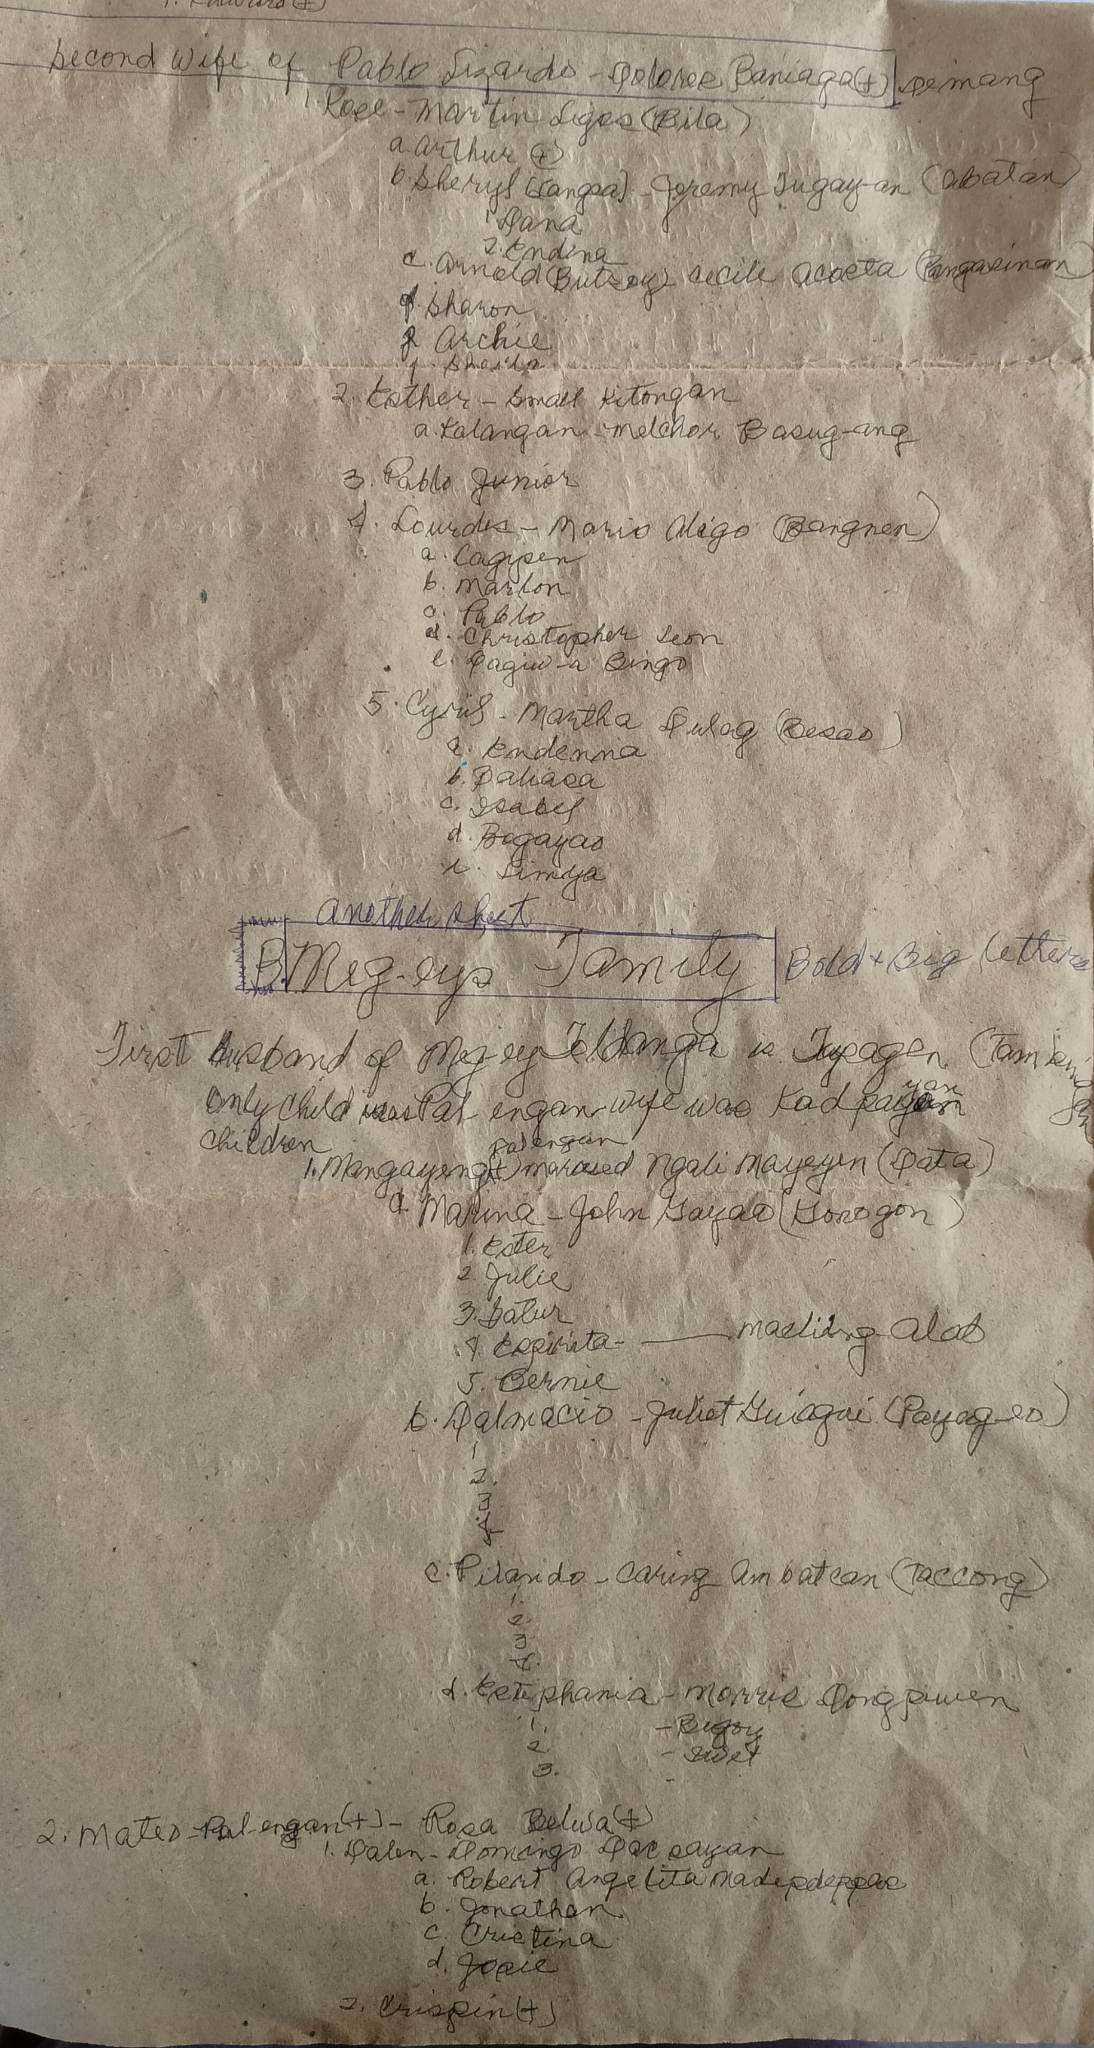 Second Wife of Pablo Lizardo - Dolores Baniaga (+) Demang
1. Rose - Martin Ligos (Bila)
a. Arthur (+)
b. Sheryl (Langsa) - Joremy Tugay-an (Abatan)
1. Dana
2. Endina
c. Arnold (Butsoy) Cecile Acosta (Pangasinan)
Sharon
Archie
2. Esther - Small Kitongan
a. Kalangan - Melchor Basug-ang
3. Pablo Junior
4. Lourdes - Mario Aligo (Bangnen)
a. Cagysen
b. Marlon
c. Pablo
d. Christopher Leon
e. Dagiw-a Bingo
5. Cyril - Martha Dulag (Besao)
a. Endenna
b. Daliasa
c. Isabel
d. Bogayao
e. Limya
another sheet
B. Meg-eys Family Bold & Big letters
First Husband of Meg-ey is Tupagen
only child was Pal-engan wife was Kad
children
palengan
1. Mangayeng (+) married Ngali Mayeyen (Data)
a. Marina - John Gayao (Gonogon)
1. Ester
2. Julie
3. Satur
4. Espirita - maeliing-Alab
5. Bernie
b. Dalmacio - Juliet Guiagui (Payag-eo)
1
2.
3
4
c. Pilando - Caring Ambatcan (Taccong)
1.
2.
3
4.
d. Estephania - Morris Dongpuwen
1. - Bugoy
2. - Swet
3.
2. Mateo Pal-engan (+) - Rosa Belwa (+)
1. Dalen - Domingo Dacsayan
a. Robert Angelita
b. Jonathan
c. Cristina
d. Josie
2. Crispin (+)